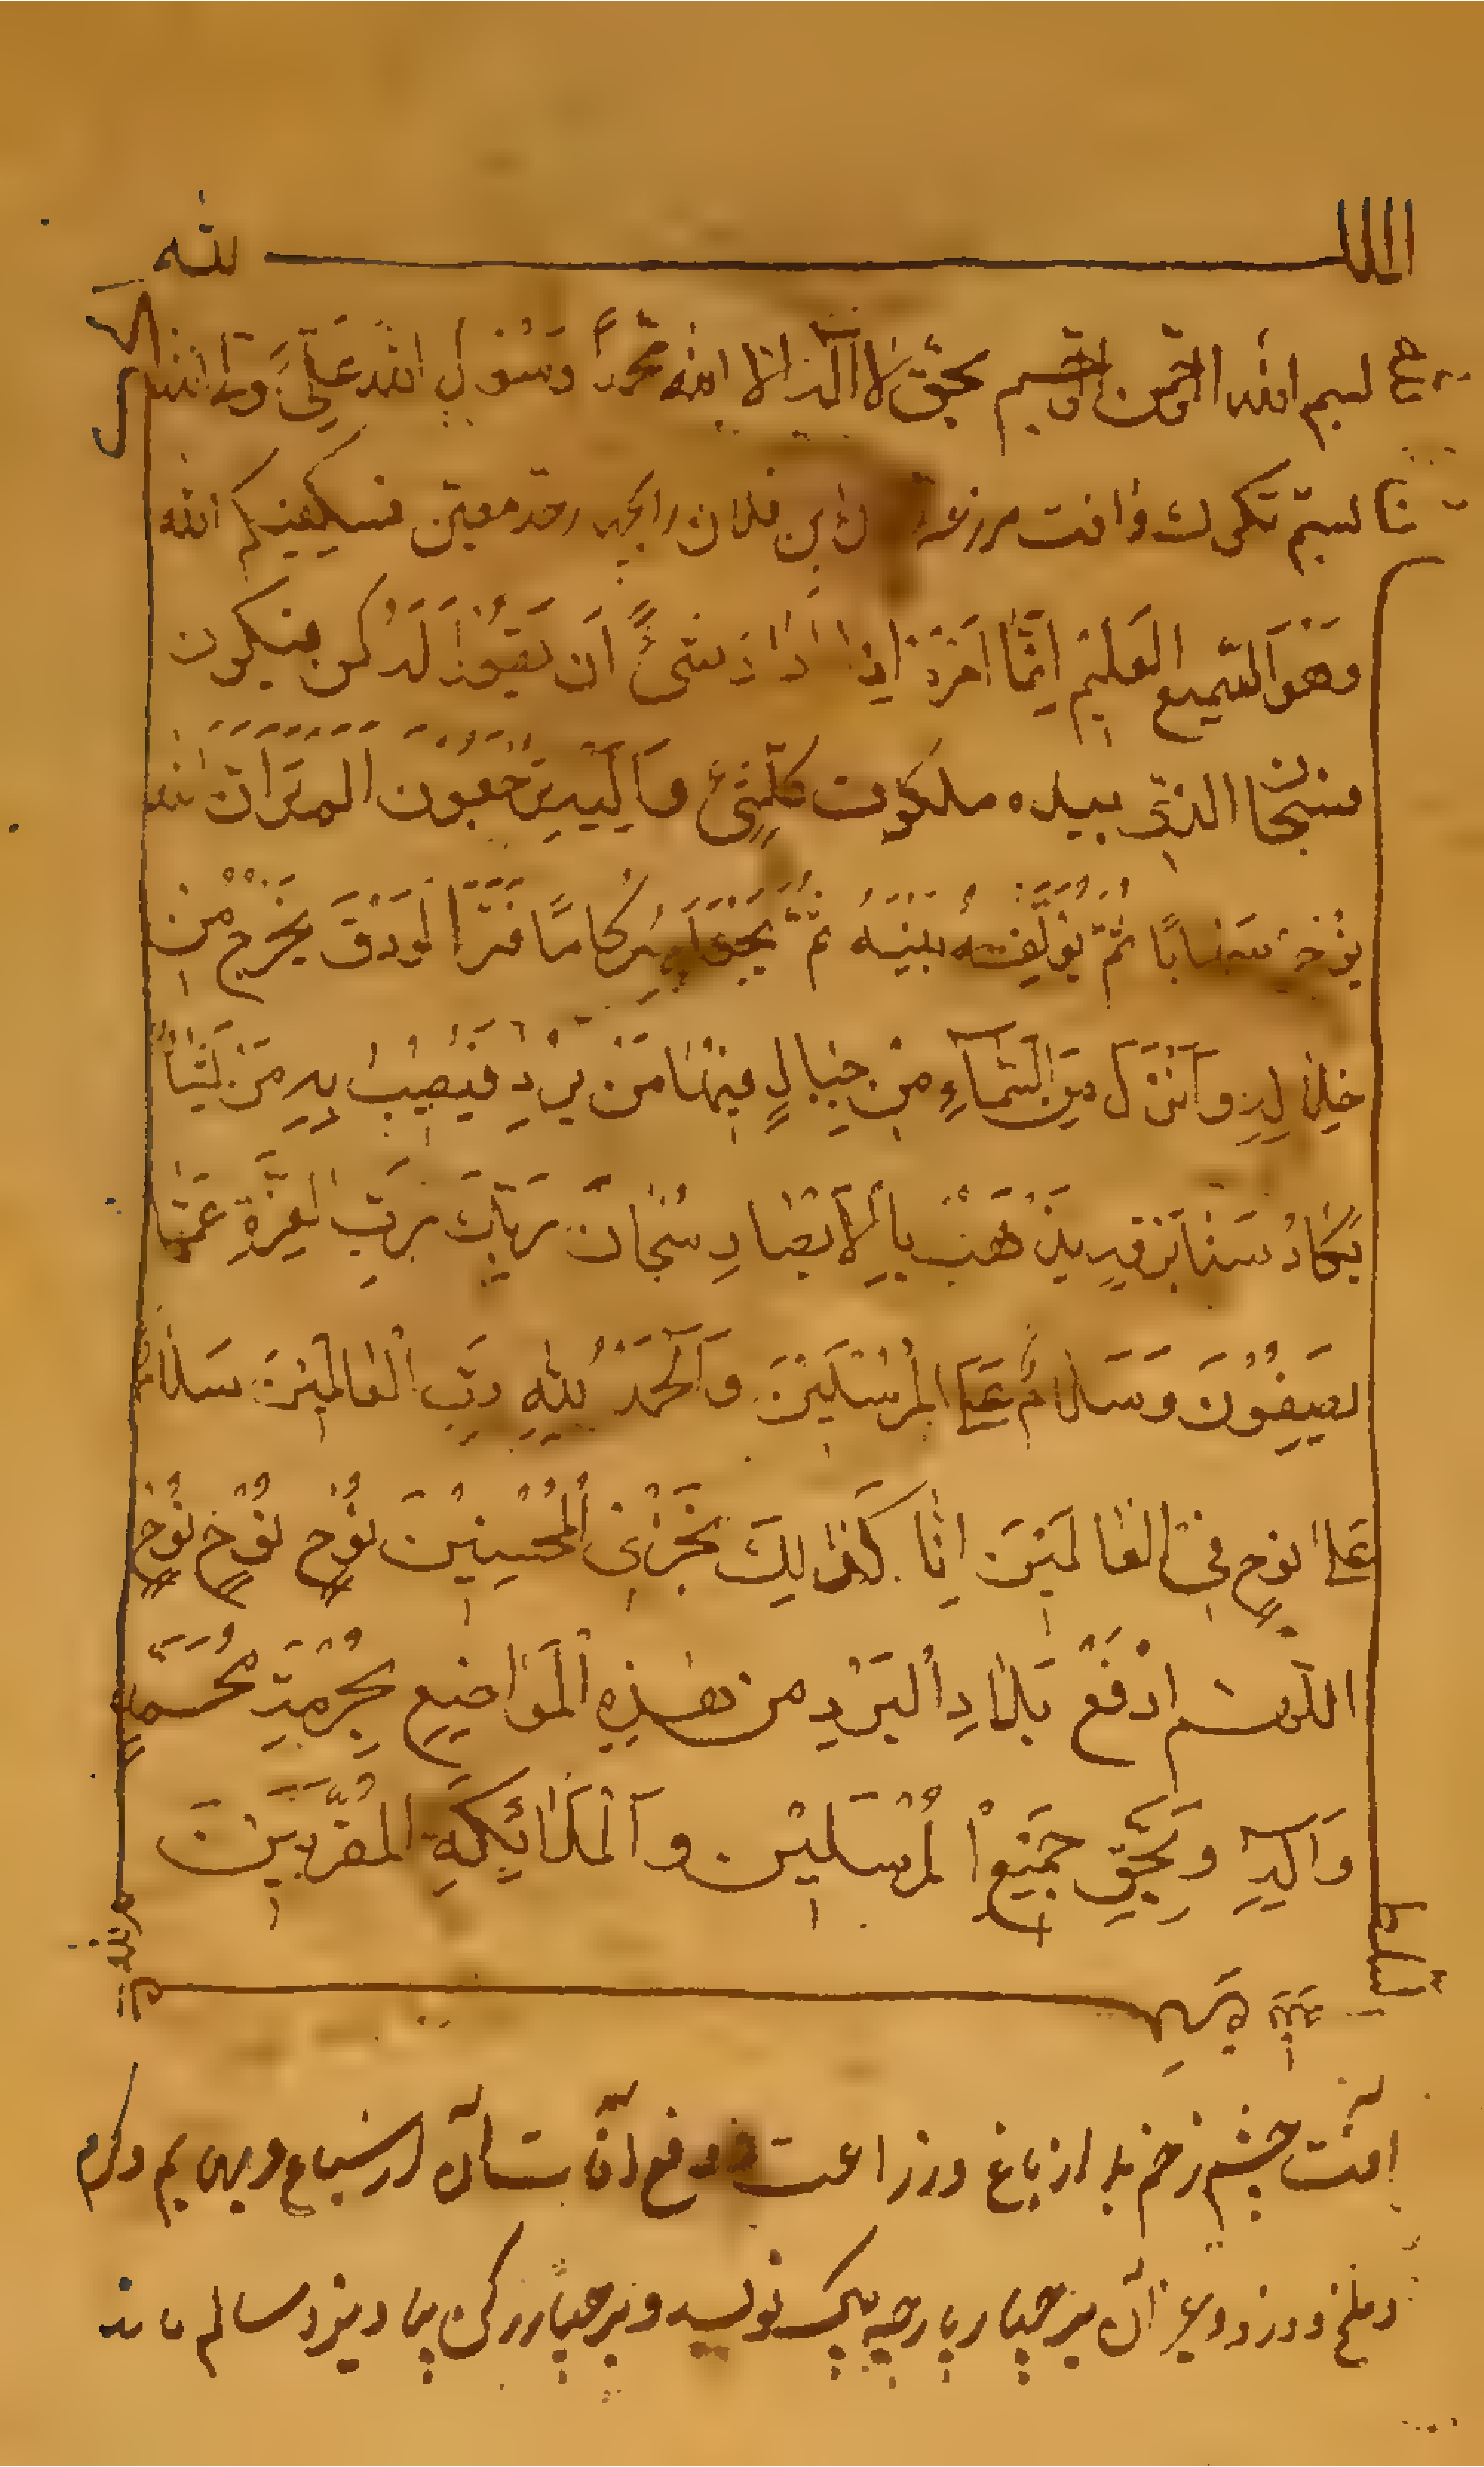 الله
بسم الله الرحمن الرحيم بحق لا اله الا الله محمدًا رسول الله علي ولي الله
بستم نكرك و افت مزرعة بن فلان را بحد معين فسيكفيكهم الله
وَهُوَ السَّمِيع العَلِيم اِنَّمٰا اَمْرُهُ اِذٰا اَرٰادَ شَیْئًا اَن يَقُولَ لَهُ كُن فيكون
فسبحان الذى بيده ملكوت كلشئ وَاِلَيْهِ تُرْجَعُونَ الم تَرَ اَنَّ الله
يزْجى سَحابًا ثُمَّ يُؤَلِّفُ بَيْنَهُ ثُمَّ يَجْعَلُهُ رُكامًا فَتَرَ الْوَدْقَ يَخْرُج مِنْ
خِلٰالِهِ وَاَنْزَلَ مِنَ السَّمآءِ مِنْ جِبالٍ فيهٰا مَنْ بَرْدٍ فَيُصِيبُ بِهِ مَنْ يَشٰاءُ
يَكادُ سَنٰا بَرْقِهِ يَذْهَبُ بِالْاَبْصٰارِ سُبْحٰانَ رَبِّكَ رَبِّ الْعِزَّةِ عَمّٰا
يَصِفُونَ وَسَلٰامٌ عَلَى الْمُرْسَلينَ وَالْحَمْدُ لِلّٰهِ رَبِّ الْعٰالَمينَ سَلٰامٌ
عَلىٰ نوحٍ فِى الْعٰالَمينَ اِنّٰا كَذٰلِكَ نَجْزِى الْمُحْسِنِيْنَ نُوْحٍ نُوْحٍ نُوْحٍ
اللّهم ادْفَعْ بَلٰاءِ الْبَرْدِ من هٰذِهِ الْمَوٰاضِعِ بِحُرْمَةِ مُحَمَّدٍ
وَآلِهِ وَبِحَقِّ جَمِيْعِ الْمُرْسَلِيْن وَالْمَلٰائِكَةِ الْمُقَرَّبِيْنَ
افت چشم زخم بد از باغ و زراعت و دفع آفات آن از سباع و بهايم و كرم
و ملخ و دزد و غير آن بر چهار پارچه نويسد و بر چهار ركن بياويزد سالم ماند